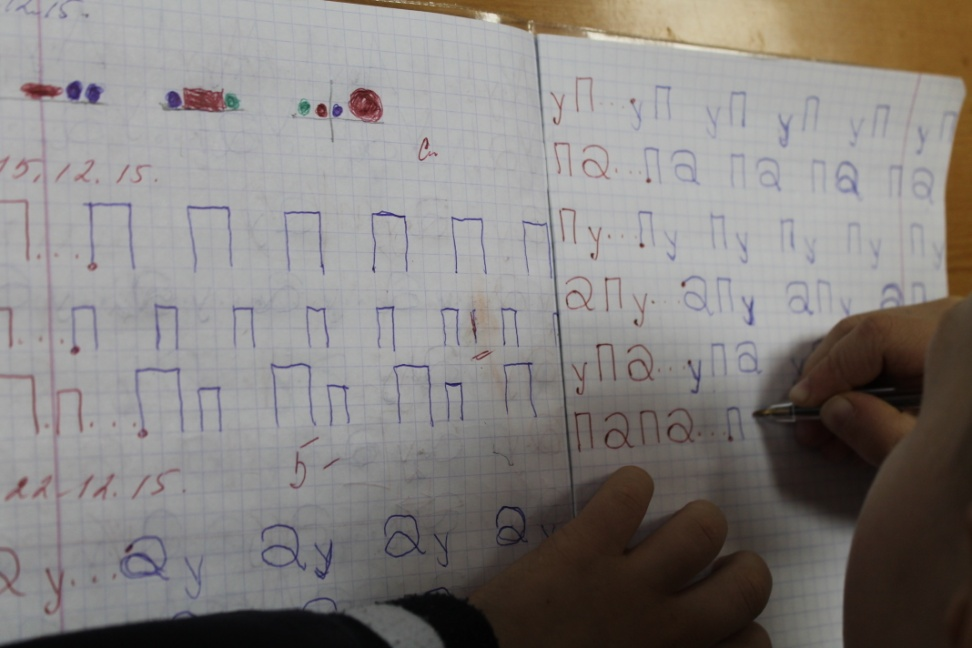 12.15.
См
15.12.15.
П....П П П П П П
П....П П П П П П П
П П....П П П П П П П
5-
22-12.15.
а у...а у а у а у а у
уП...уП уП уП уП уП
Па...Па Па Па Па
Пу...Пу Пу Пу Пу Пу
аПу..аПу аПу аП
уПа..уПа у
ПаПа..П